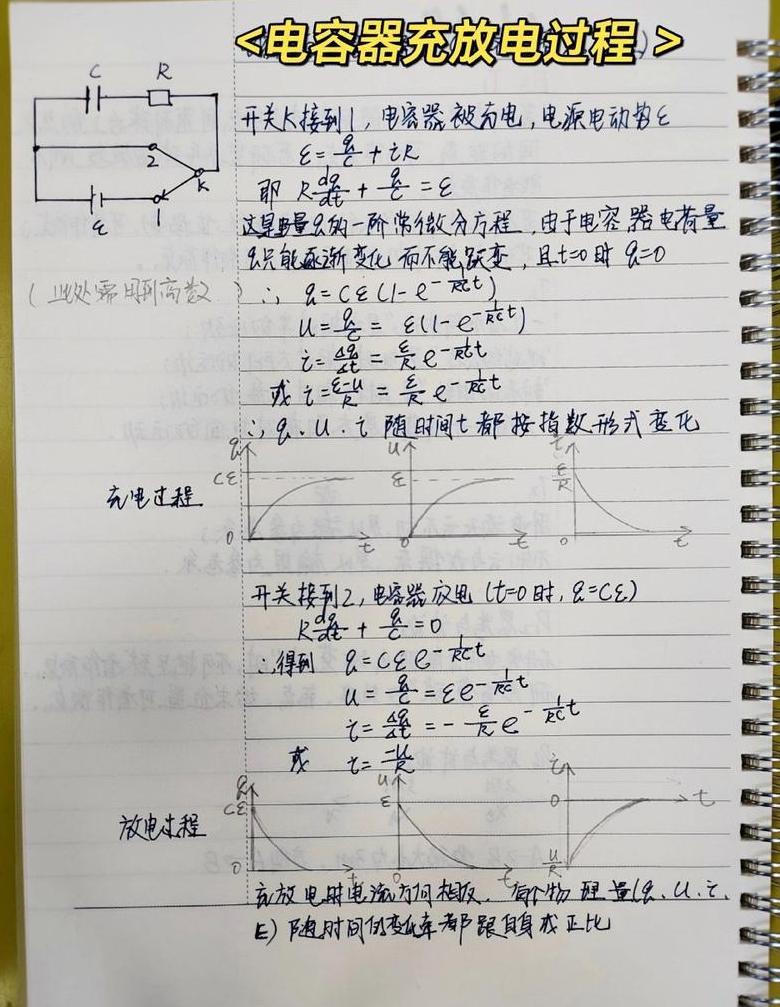 <电容器充放电过程 >
C R
2
K
ε 1
开关K接到1, 电容器被充电, 电源电动势ε
ε = q/c + iR
即 R dq/dt + q/c = ε
这是电量q的一阶常微分方程, 由于电容器电荷量
q只能逐渐变化而不能跃变, 且t=0时 q=0
(此处需用到高数)
∴ q = Cε(1 - e^{-1/RC t})
u = q/c = ε(1 - e^{-1/RC t})
i = Δq/Δt = ε/R e^{-1/RC t}
或 i = ε-u/R = ε/R e^{-1/RC t}
∴ q、u、i 随时间t都按指数形式变化
充电过程
q cε 0 t
u ε 0 t
i ε/R 0 t
开关接到2, 电容器放电 (t=0时, q=Cε)
R dq/dt + q/c = 0
∴得到 q = cε e^{-1/RC t}
u = q/c = ε e^{-1/RC t}
i = Δq/Δt = - ε/R e^{-1/RC t}
或 i = -u/R
放电过程
q cε 0 t
u ε 0 t
i 0 t u/R
充放电时电流方向相反. 每个物理量(q、u、i、
E) 随时间的变化率都跟自身成正比